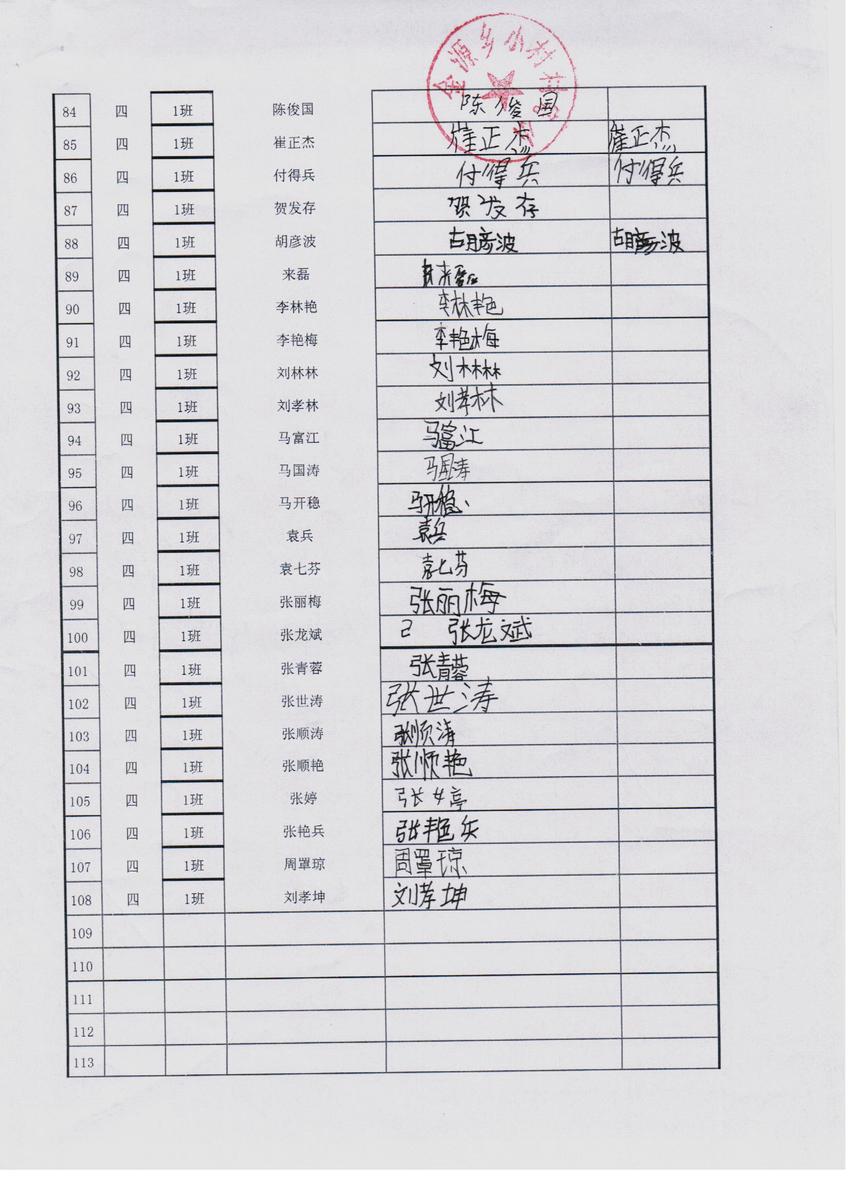 金源乡小村村
84 四 1班 陈俊国 陈俊国
85 四 1班 崔正杰 崔正杰 崔正杰
86 四 1班 付得兵 付得兵 付得兵
87 四 1班 贺发存 贺发存
88 四 1班 胡彦波 胡彦波 胡彦波
89 四 1班 来磊 来磊
90 四 1班 李林艳 李林艳
91 四 1班 李艳梅 李艳梅
92 四 1班 刘林林 刘林林
93 四 1班 刘孝林 刘孝林
94 四 1班 马富江 马富江
95 四 1班 马国涛 马国涛
96 四 1班 马开稳 马开稳
97 四 1班 袁兵 袁兵
98 四 1班 袁七芬 袁七芬
99 四 1班 张丽梅 张丽梅
100 四 1班 张龙斌 2 张龙斌
101 四 1班 张青蓉 张青蓉
102 四 1班 张世涛 张世涛
103 四 1班 张顺涛 张顺涛
104 四 1班 张顺艳 张顺艳
105 四 1班 张婷 张婷
106 四 1班 张艳兵 张艳兵
107 四 1班 周罩琼 周罩琼
108 四 1班 刘孝坤 刘孝坤
109
110
111
112
113